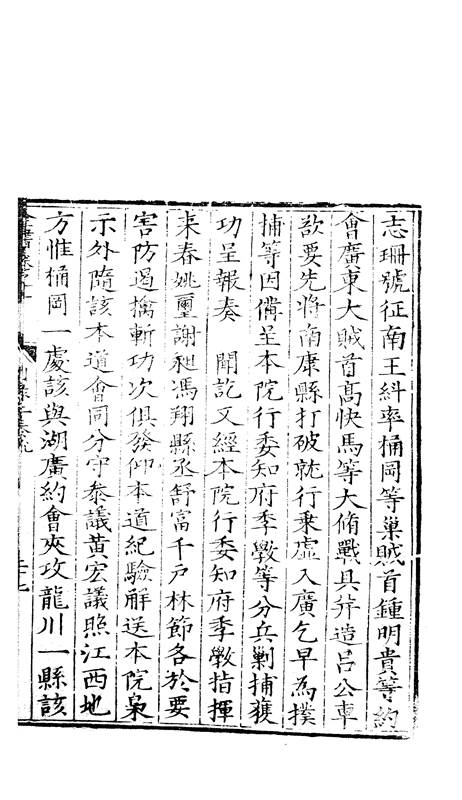 志珊號征南王糾率桶岡等巢賊首鍾明貴等約
會廣東大賊首高快馬等大脩戰具并造呂公車
欲要先將南康縣打破就行乘虛入廣乞早為撲
捕等因備呈本院行委知府季斆等分兵剿捕獲
功呈報奏　聞訖又經本院行委知府季斆指揮
来春姚璽謝昶馮翔縣丞舒富千戶林節各於要
害防遏擒斬功次俱發仰本道紀驗解送本院梟
示外隨該本道會同分守叅議黃宏議照江西地
方惟桶岡一處該與湖廣約會夾攻龍川一縣該